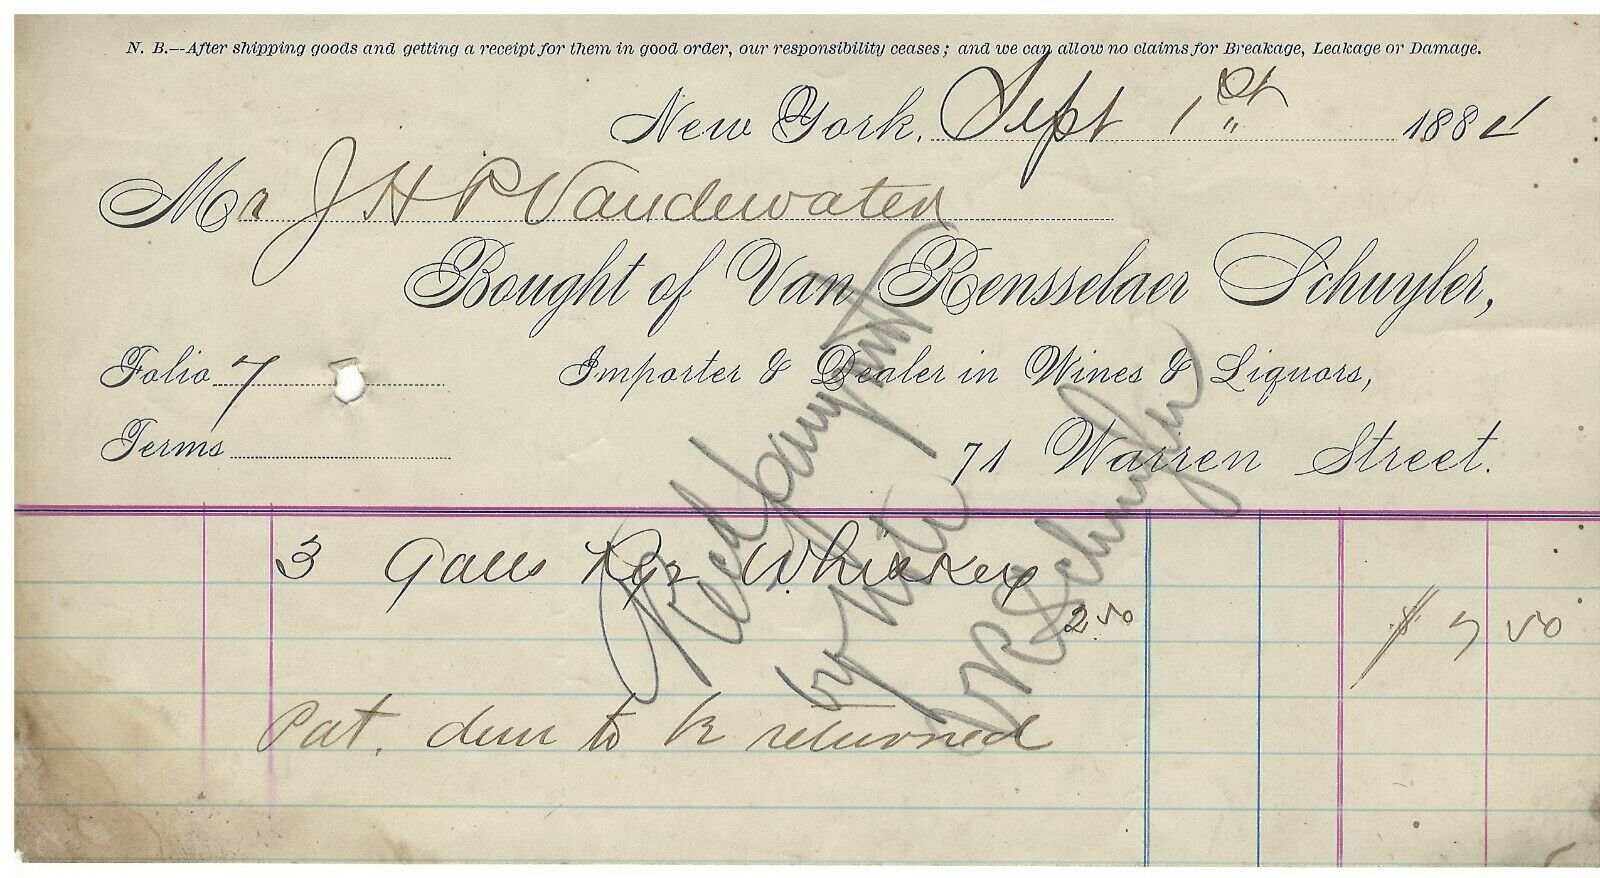 N. B.—After shipping goods and getting a receipt for them in good order, our responsibility ceases; and we can allow no claims for Breakage, Leakage or Damage.
New York, Sept 1st 1884
Mr J H P Vandewater
Bought of Van Rensselaer Schuyler,
Folio 7
Importer & Dealer in Wines & Liquors,
Terms
71 Warren Street.
3 Galls Rye Whiskey
2.50
$ 7 50
Recd payment
by note
V R Schuyler
Pat. dem to be returned